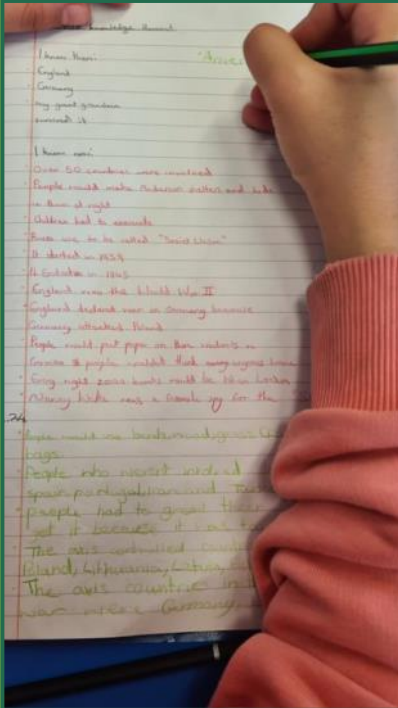 knowledge harvest
I knew then:
England
Germany
my great grandma
survived it
I know now:
Over 50 countries were involved
People would make Anderson shelters and hide
in them at night
Children had to evacuate
Russia use to be called "Soviet Union"
It started in 1939
It Ended in in 1945
England won the World War II
England declared war on Germany because
Germany attacked Poland
People would put paper on their windows so
German people wouldn't think
Every night bombs would be hit on London
was a female spy for the
People would use
bags.
People who weren't involved
spain, portugal, Iran and
people had to
get it because it was
The axis controlled
Poland, Lithuania, Latvia,
The axis countrie in
war were: Germany,